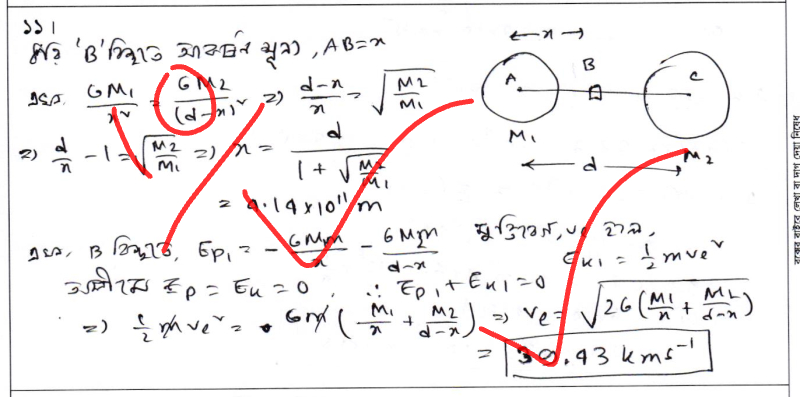 ১১।
ধরি 'B' বিন্দুতে আকর্ষন শূন্য, AB=x
এখন, GM₁/x² = GM₂/(d-x)² ⇒ (d-x)/x = √(M₂/M₁)
⇒ d/x - 1 = √(M₂/M₁) ⇒ x = d/(1 + √(M₂/M₁))
= 4.14×10¹¹ m
এখন, B বিন্দুতে, Ep₁ = - GM₁m/x - GM₂m/(d-x) মুক্তিবেগ, ve হলে,
Ek₁ = ½mve²
অসীমে Ep = Ek = 0, ∴ Ep₁ + Ek₁ = 0
⇒ ½mve² = Gm(M₁/x + M₂/(d-x)) ⇒ ve = √(2G(M₁/x + M₂/(d-x)))
= 30.43 kms⁻¹
x
A
B
C
M₁
M₂
d
বক্সের বাইরে লেখা বা দাগ দেয়া নিষেধ